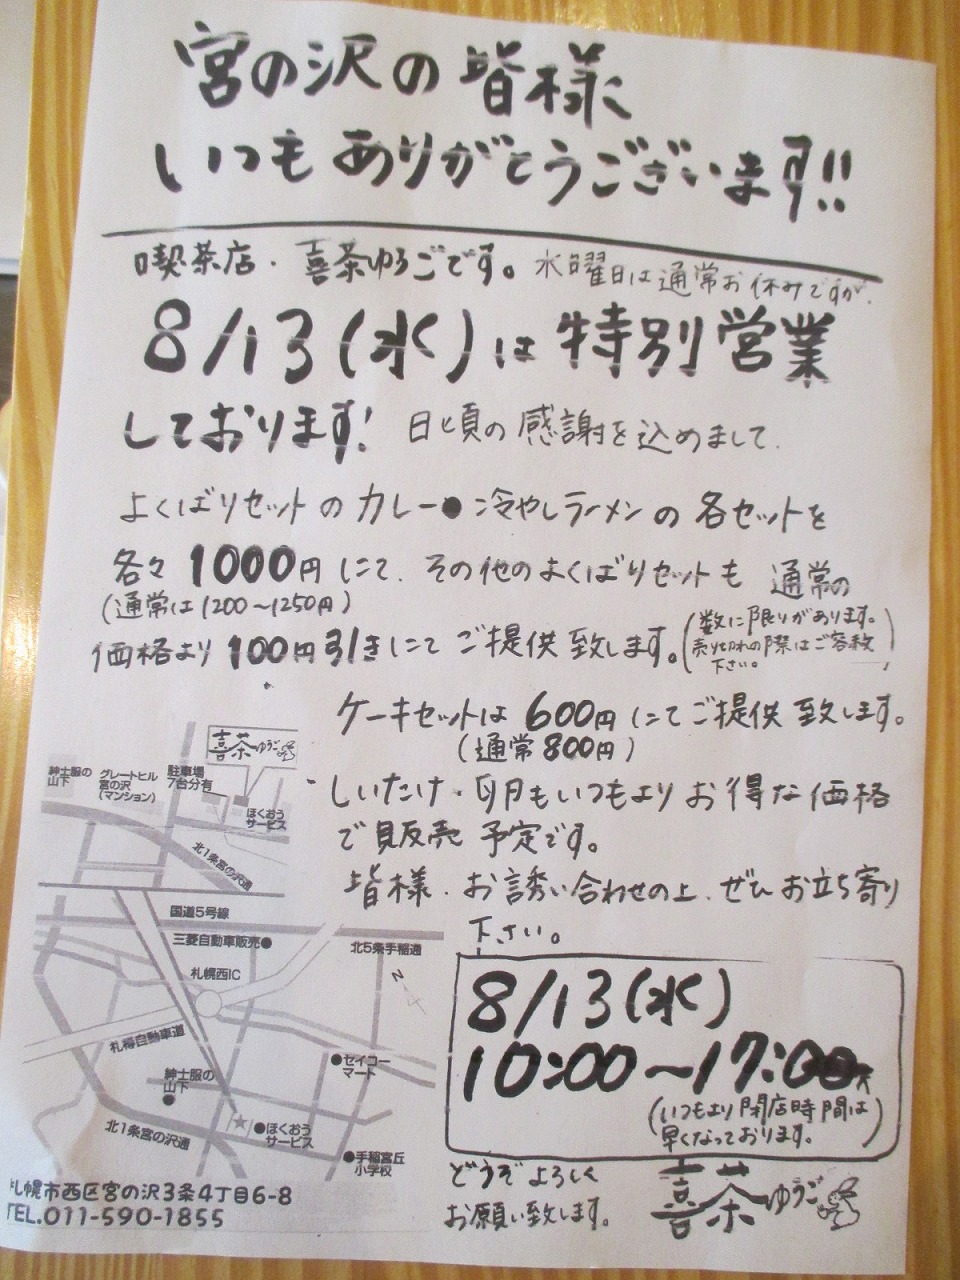 宮の沢の皆様
いつもありがとうございます!!
喫茶店・喜茶ゆうごです。水曜日は通常お休みですが、
8/13(水)は特別営業
しております! 日頃の感謝を込めまして、
よくばりセットのカレー●冷やしラーメンの各セットを
各々1000円にて、その他のよくばりセットも 通常の
(通常は1200〜1250円)
価格より100円引きにてご提供致します。
(数に限りがあります。
売り切れの際はご容赦
下さい。)
ケーキセットは600円にてご提供致します。
(通常800円)
しいたけ・卵もいつもよりお得な価格
で販売予定です。
皆様、お誘い合わせの上、ぜひお立ち寄り
下さい。
8/13(水)
10:00〜17:00
(いつもより閉店時間は
早くなっております。)
どうぞよろしく
お願い致します。
喜茶ゆうご
喜茶ゆうご
紳士服の
山下
グレートヒル
宮の沢
(マンション)
駐車場
7台分有
ほくおう
サービス
北1条宮の沢通
国道5号線
三菱自動車販売●
北5条手稲通
札幌西IC
N
札樽自動車道
紳士服の
山下
●セイコー
マート
北1条宮の沢通
●ほくおう
サービス
●手稲宮丘
小学校
札幌市西区宮の沢3条4丁目6-8
TEL.011-590-1855